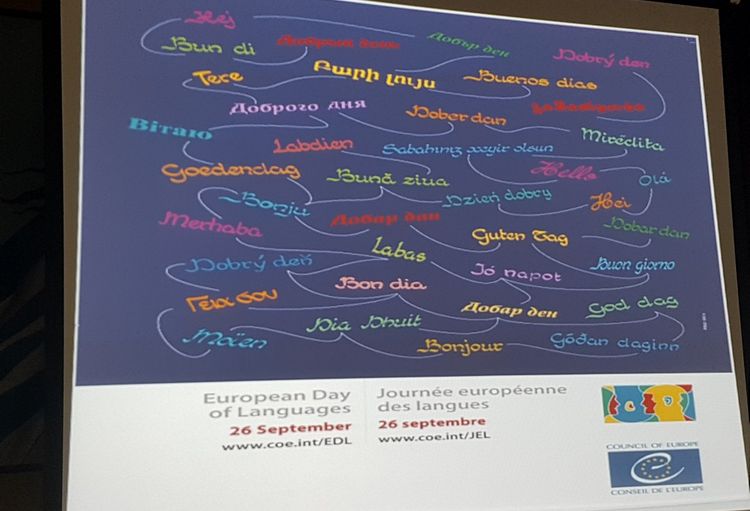 Hej
Bun di
Добрый день
Добър ден
Dobrý den
Tere
Բարի լույս
Buenos días
Доброго дня
Dober dan
Вiтаю
Labdien
Sabahınız xeyir olsun
Mirëdita
Goedendag
Bună ziua
Hello
Olá
Bonju
Dzień dobry
Hei
Merhaba
Добар дан
Guten Tag
Dobar dan
Labas
Dobrý deň
Jó napot
Buon giorno
Bon dia
Γεια σου
Добар ден
God dag
Moïen
Dia Dhuit
Bonjour
Góðan daginn
European Day
of Languages
26 September
www.coe.int/EDL
Journée européenne
des langues
26 septembre
www.coe.int/JEL
COUNCIL OF EUROPE
CONSEIL DE L'EUROPE